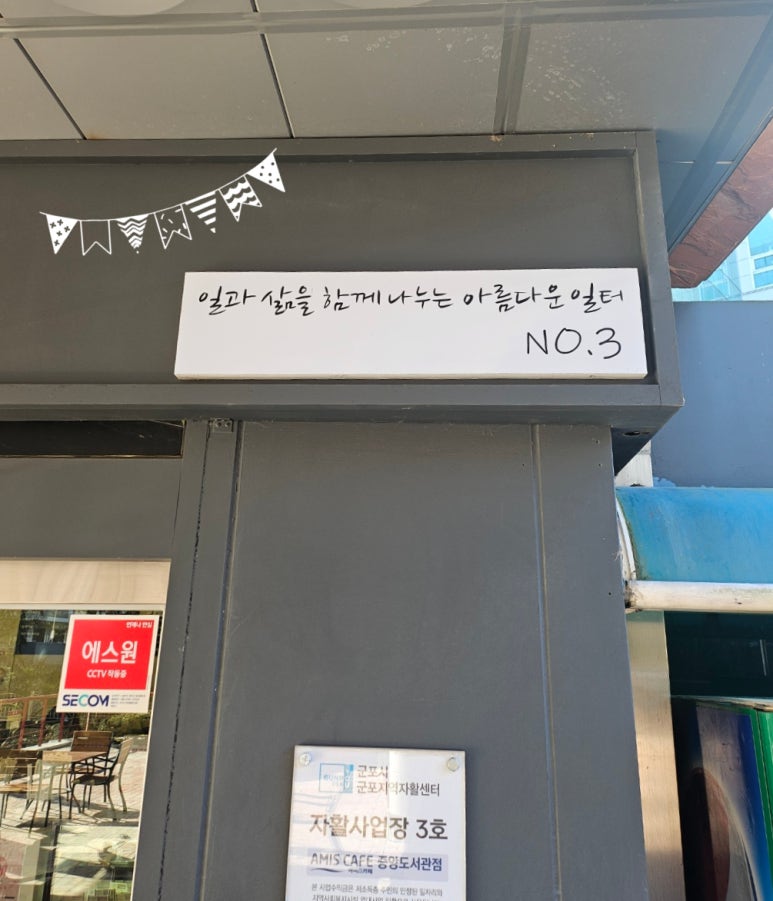 일과 삶을 함께 나누는 아름다운 일터
NO.3
언제나 안심
에스원
CCTV 작동중
SECOM
군포시
군포지역자활센터
자활사업장 3호
AMIS CAFE 중앙도서관점
본 사업수익금은 저소득층 주민의 안정된 일자리와